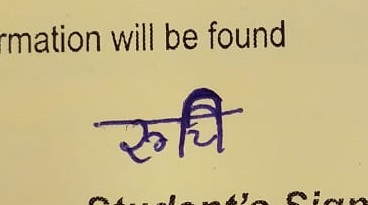 rmation will be found
रुचि
Student's Sign